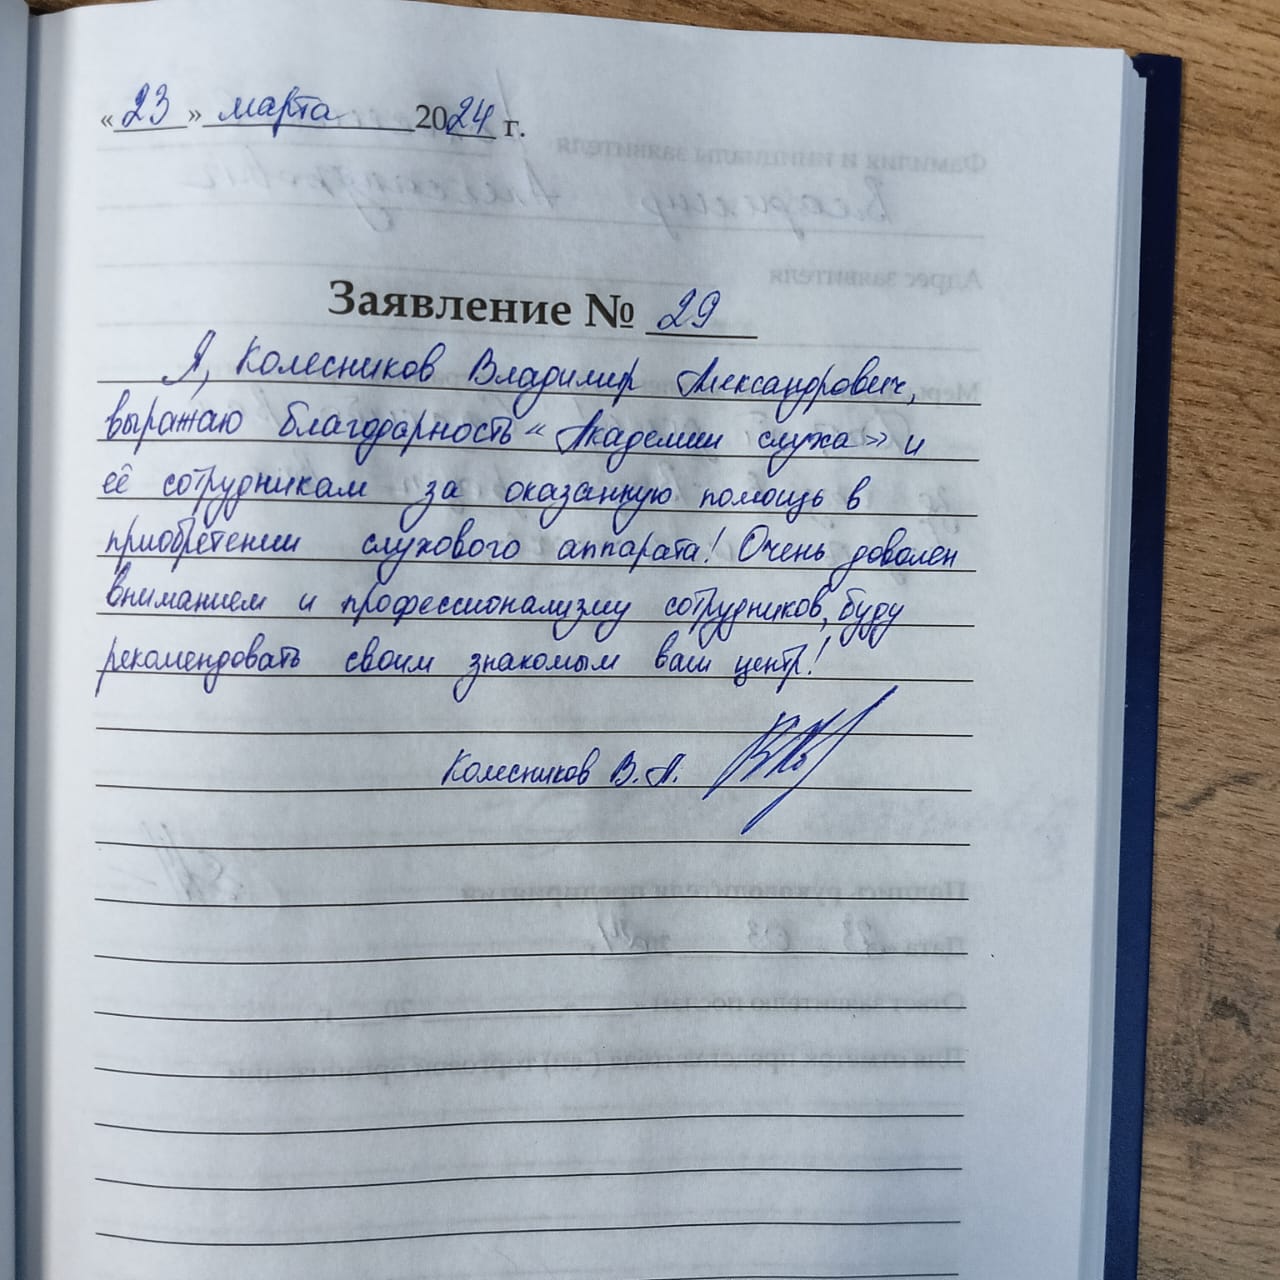 «23» марта 2024 г.
Заявление № 29
Я, Колесников Владимир Александрович,
выражаю благодарность «Академии слуха» и
её сотрудникам за оказанную помощь в
приобретении слухового аппарата! Очень доволен
вниманием и профессионализму сотрудников, буду
рекомендовать своим знакомым ваш центр!
Колесников В. А.